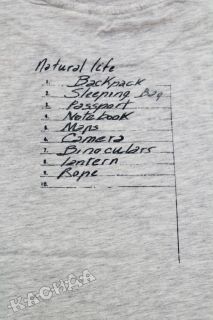 Natural life
1. Backpack
2. Sleeping Bag
3. Passport
4. Notebook
5. Maps
6. Camera
7. Binoculars
8. lantern
9. Rope
10.
KACHAA